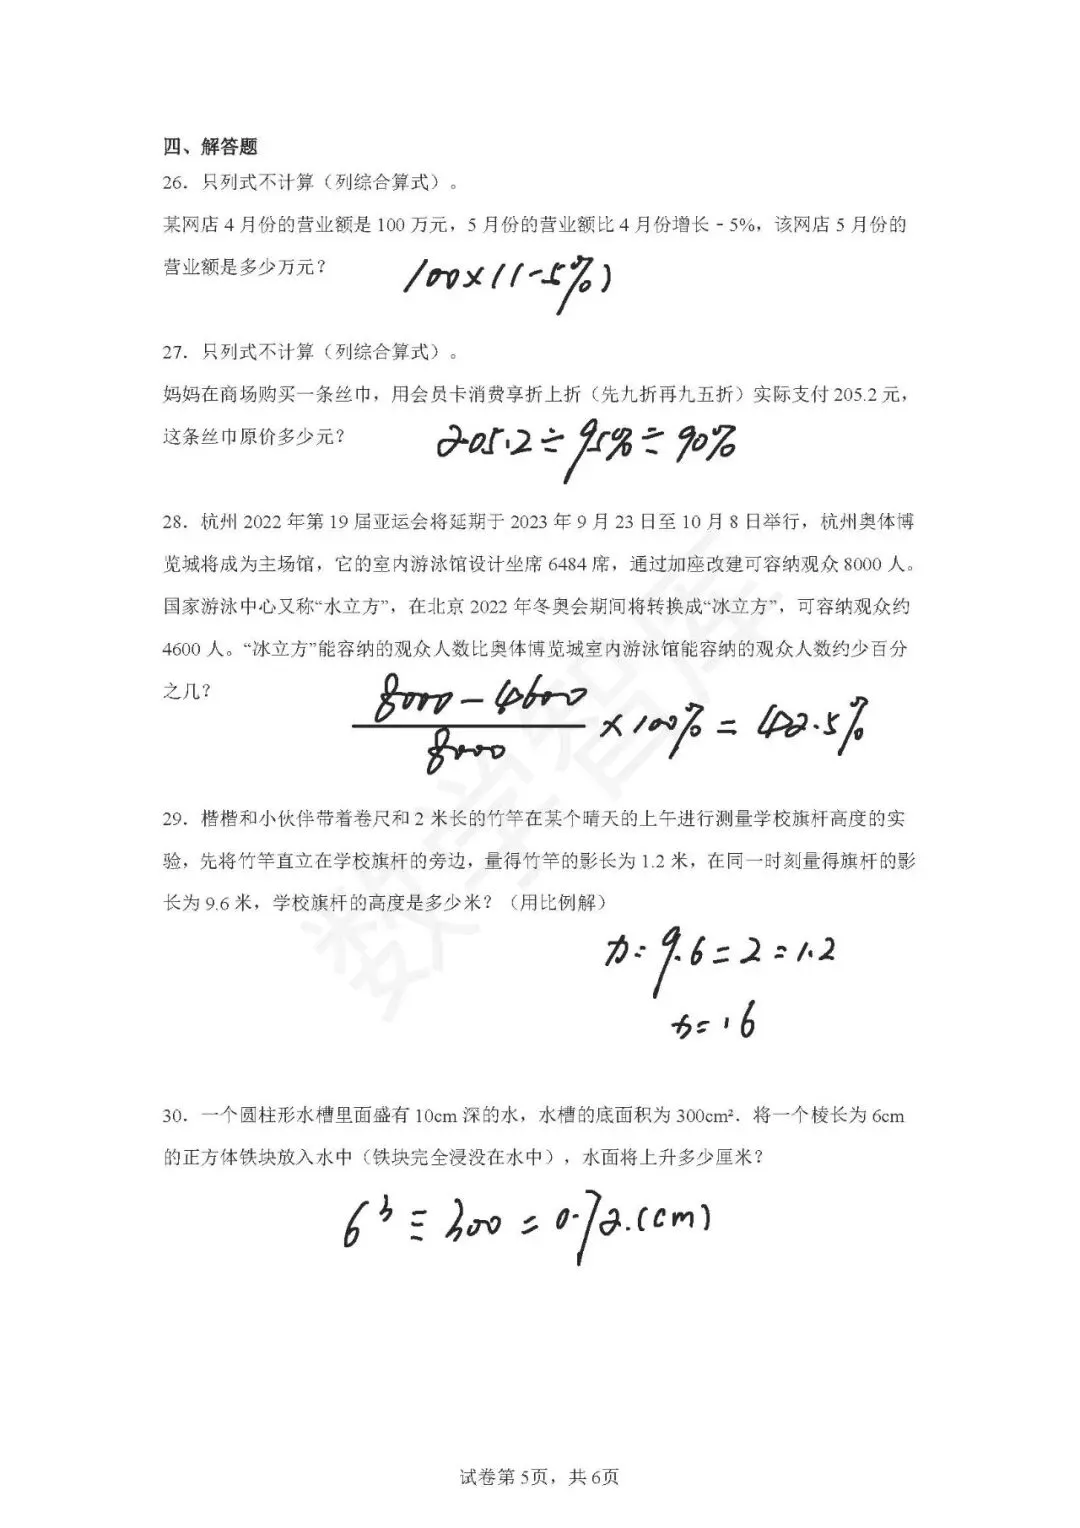 四、解答题
26．只列式不计算（列综合算式）。
某网店 4 月份的营业额是 100 万元，5 月份的营业额比 4 月份增长﹣5%，该网店 5 月份的
营业额是多少万元？
100×(1-5%)
27．只列式不计算（列综合算式）。
妈妈在商场购买一条丝巾，用会员卡消费享折上折（先九折再九五折）实际支付 205.2 元，
这条丝巾原价多少元？
205.2÷95%÷90%
28．杭州 2022 年第 19 届亚运会将延期于 2023 年 9 月 23 日至 10 月 8 日举行，杭州奥体博
览城将成为主场馆，它的室内游泳馆设计坐席 6484 席，通过加座改建可容纳观众 8000 人。
国家游泳中心又称“水立方”，在北京 2022 年冬奥会期间将转换成“冰立方”，可容纳观众约
4600 人。“冰立方”能容纳的观众人数比奥体博览城室内游泳馆能容纳的观众人数约少百分
之几？
8000-4600
8000
×100%=42.5%
29．楷楷和小伙伴带着卷尺和 2 米长的竹竿在某个晴天的上午进行测量学校旗杆高度的实
验，先将竹竿直立在学校旗杆的旁边，量得竹竿的影长为 1.2 米，在同一时刻量得旗杆的影
长为 9.6 米，学校旗杆的高度是多少米？（用比例解）
x:9.6=2:1.2
x=16
30．一个圆柱形水槽里面盛有 10cm 深的水，水槽的底面积为 300cm²．将一个棱长为 6cm
的正方体铁块放入水中（铁块完全浸没在水中），水面将上升多少厘米？
6³÷300=0.72.(cm)
数学智库
试卷第 5页，共 6页